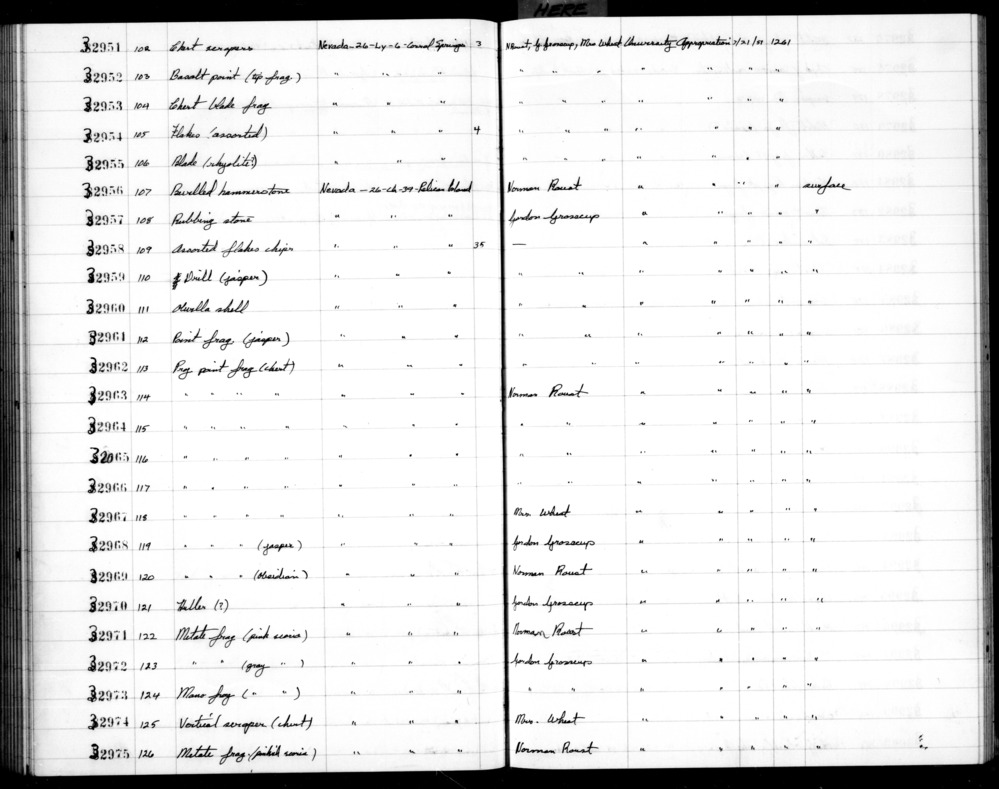 HERE
32951 102 Chert scrapers Nevada-26-Ly-6-Corral Springs 3 N. Roust, G. Grosscup, Mrs Wheat University Appropriation 7/21/51 1261
32952 103 Basalt point (tip frag.) " " " " " " " " " "
32953 104 Chert blade frag " " " " " " " " " "
32954 105 Flakes (assorted) " " " 4 " " " " " " "
32955 106 Blade (rhyolite?) " " " " " " " " " "
32956 107 Bevelled hammerstone Nevada - 26-Ch-39-Pelican Island Norman Roust " " " " surface
32957 108 Rubbing stone " " " Gordon Grosscup " " " " "
32958 109 Assorted flakes chips " " " 35 — " " " " "
32959 110 Drill (jasper) " " " " " " " " " "
32960 111 Olivella shell " " " " " " " " " "
32961 112 Point frag. (jasper) " " " " " " " " " "
32962 113 Proj point frag (chert) " " " " " " " " " "
32963 114 " " " " " " " Norman Roust " " " " "
32964 115 " " " " " " " " " " " " " "
32965 116 " " " " " " " " " " " " " "
32966 117 " " " " " " " " " " " " " "
32967 118 " " " " " " " Mrs. Wheat " " " " "
32968 119 " " " (jasper) " " " Gordon Grosscup " " " " "
32969 120 " " " (obsidian) " " " Norman Roust " " " " "
32970 121 Huller (?) " " " Gordon Grosscup " " " " "
32971 122 Metate frag (pink scoria) " " " Norman Roust " " " " "
32972 123 " " (gray " ) " " " Gordon Grosscup " " " " "
32973 124 Mano frag ( " " ) " " " " " " " " " "
32974 125 Vertical scraper (chert) " " " Mrs. Wheat " " " " "
32975 126 Metate frag. ( scoria) " " " Norman Roust " " " " "